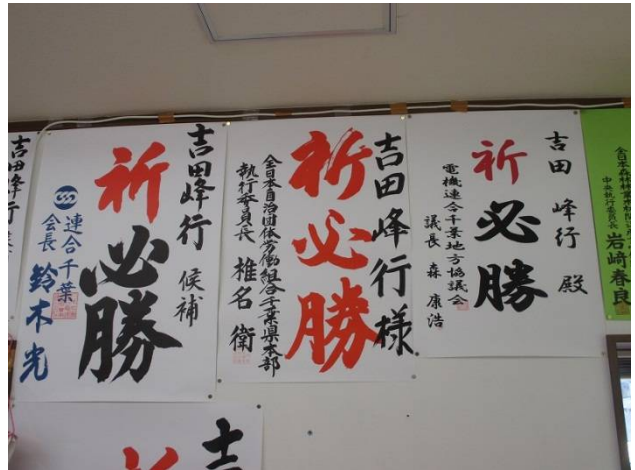 吉田峰行
吉田峰行 候補
祈
必勝
連合千葉
会長 鈴木光
吉田峰行様
祈必勝
全日本自治団体労働組合千葉県本部
執行委員長 椎名衛
吉田 峰行 殿
祈
必勝
電機連合千葉地方協議会
議長 森 康浩
中央執行委員長 岩﨑春良
吉
祈